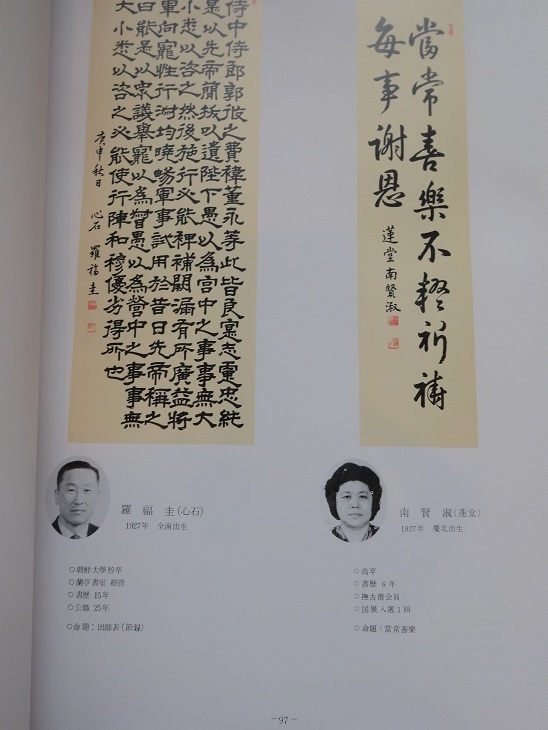 侍中侍郎郭攸之費褘董允等此皆良實志慮忠純
是以先帝簡拔以遺陛下愚以為宮中之事事無大
小悉以咨之然後施行必能裨補闕漏有所廣益將
軍向寵性行淑均曉暢軍事試用於昔日先帝稱之
曰能是以眾議舉寵以為督愚以為營中之事事無
大小悉以咨之必能使行陣和穆優劣得所也
庚申秋日 心石 羅福圭
當常喜樂不輟祈禱
每事謝恩
蓮堂南賢淑
羅 福 圭(心石)
1927年 全南出生
○朝鮮大學校卒
○蘭亭書室 經營
○書歷 15年
○公職 25年
○命題:出師表(節錄)
南 賢 淑(蓮堂)
1927年 慶北出生
○高卒
○書歷 6年
○撫古齋会員
○国展入選1回
○命題:當常善樂
-97-